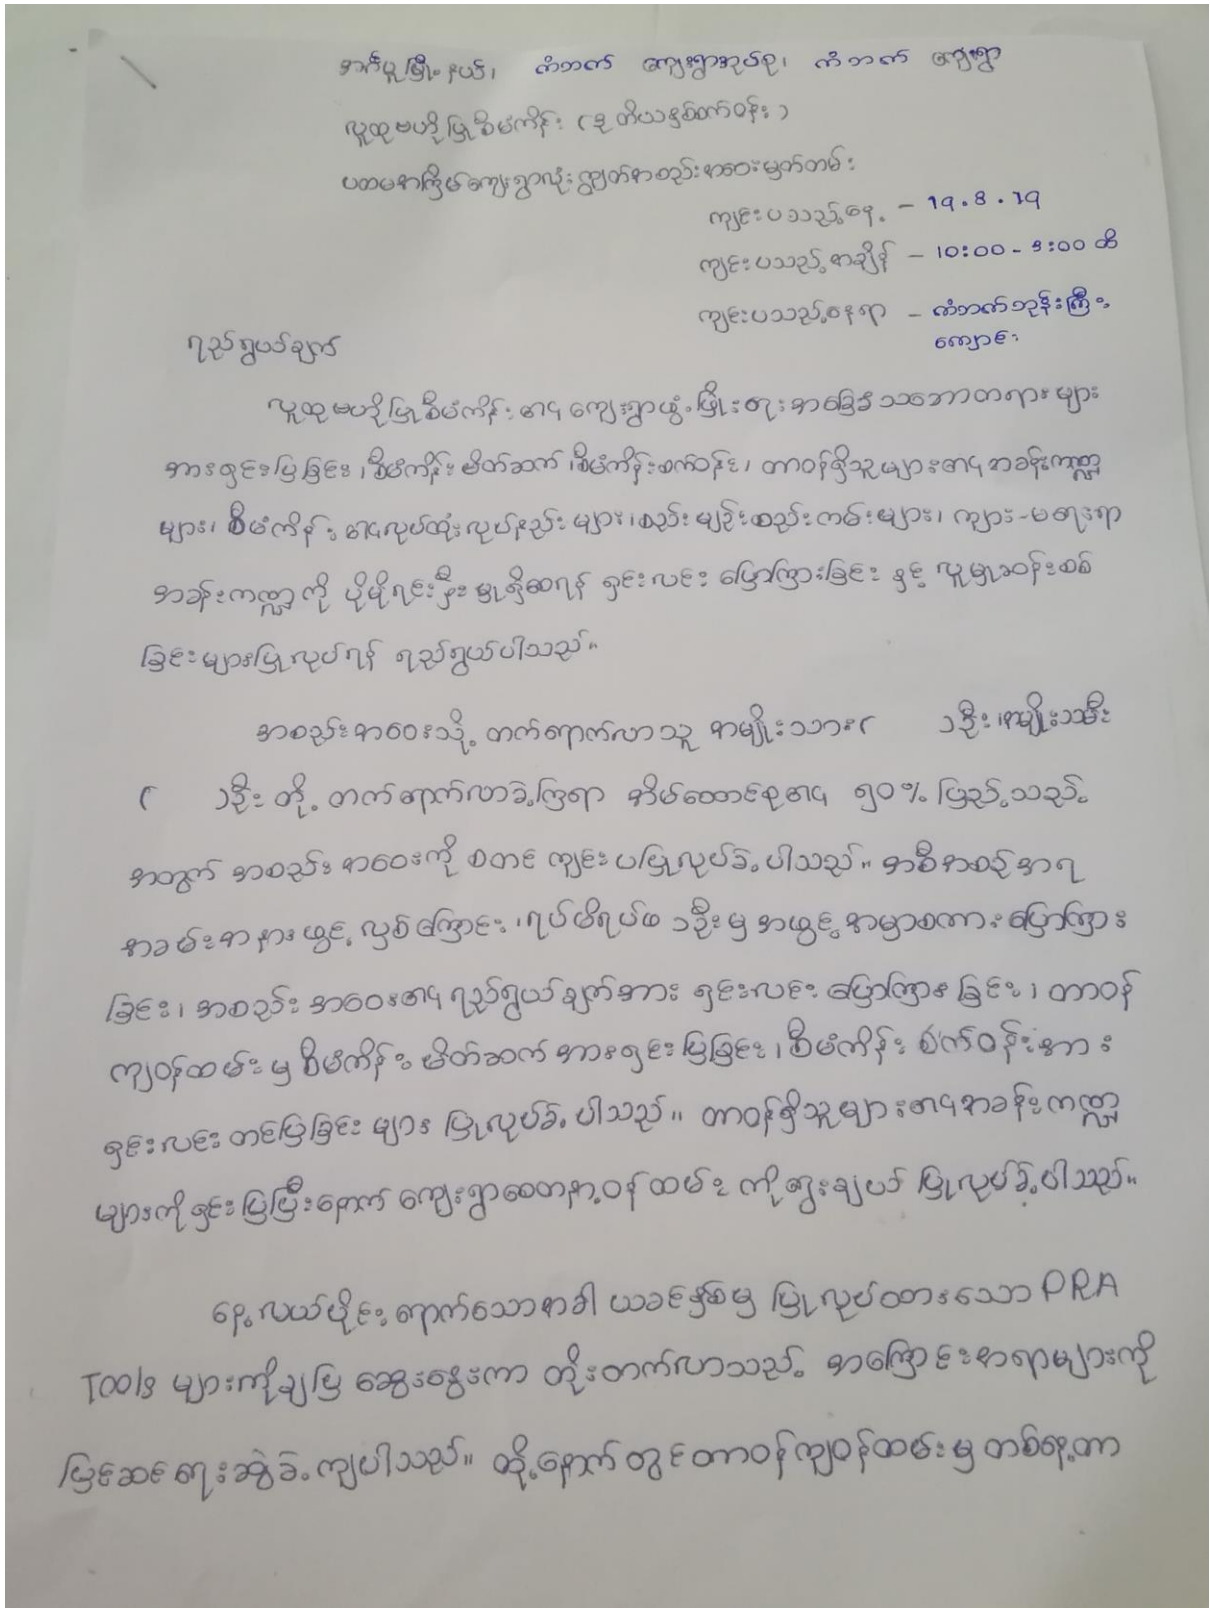 အင်္ဂပူမြို့နယ်၊ ကံဘက် ကျေးရွာအုပ်စု၊ ကံဘက် ကျေးရွာ
လူထုဗဟိုပြုစီမံကိန်း (ဒုတိယနှစ်စက်ဝန်း)
ပထမအကြိမ်ကျေးရွာလုံးကျွတ်အစည်းအဝေးမှတ်တမ်း
ကျင်းပသည့်နေ့ - 19.8.19
ကျင်းပသည့်အချိန် - 10:00 - 3:00 ထိ
ကျင်းပသည့်နေရာ - ကံဘက်ဘုန်းကြီး
ကျောင်း
ရည်ရွယ်ချက်
လူထုဗဟိုပြုစီမံကိန်း၏ ကျေးရွာဖွံ့ဖြိုးရေးအခြေခံသဘောတရားများ
အားရှင်းပြခြင်း၊ စီမံကိန်းမိတ်ဆက်၊ စီမံကိန်းစက်ဝန်း၊ တာဝန်ရှိသူများ၏အခန်းကဏ္ဍ
များ၊ စီမံကိန်း၏လုပ်ထုံးလုပ်နည်းများ၊ စည်းမျဉ်းစည်းကမ်းများ၊ ကျား-မရေးရာ
အခန်းကဏ္ဍကို ပိုမိုရင်းနှီးမှုရှိစေရန် ရှင်းလင်းပြောကြားခြင်း နှင့် လူမှုဆန်းစစ်
ခြင်းများပြုလုပ်ရန် ရည်ရွယ်ပါသည်။
အစည်းအဝေးသို့ တက်ရောက်လာသူ အမျိုးသား( )ဦး၊ အမျိုးသမီး
( )ဦး တို့ တက်ရောက်လာခဲ့ကြရာ အိမ်ထောင်စု၏ ၅၀% ပြည့်သည့်
အတွက် အစည်းအဝေးကို စတင်ကျင်းပပြုလုပ်ခဲ့ပါသည်။ အစီအစဉ်အရ
အခမ်းအနားဖွင့်လှစ်ကြောင်း၊ ရပ်မိရပ်ဖ ၁ဦးမှ အဖွင့်အမှာစကားပြောကြား
ခြင်း၊ အစည်းအဝေး၏ရည်ရွယ်ချက်အား ရှင်းလင်းပြောကြားခြင်း၊ တာဝန်
ကျဝန်ထမ်းမှ စီမံကိန်းမိတ်ဆက်အားရှင်းပြခြင်း၊ စီမံကိန်းစက်ဝန်းအား
ရှင်းလင်းတင်ပြခြင်းများ ပြုလုပ်ခဲ့ပါသည်။ တာဝန်ရှိသူများ၏အခန်းကဏ္ဍ
များကိုရှင်းပြပြီးနောက် ကျေးရွာစေတနာ့ဝန်ထမ်းကိုရွေးချယ်ပြုလုပ်ခဲ့ပါသည်။
နေ့လယ်ပိုင်းရောက်သောအခါ ယခင်နှစ်မှ ပြုလုပ်ထားသော PRA
Tools များကိုချပြဆွေးနွေးကာ တိုးတက်လာသည့် အကြောင်းအရာများကို
ပြင်ဆင်ရေးဆွဲခဲ့ကျပါသည်။ ထို့နောက်တွင်တာဝန်ကျဝန်ထမ်းမှ တစ်နေ့တာ